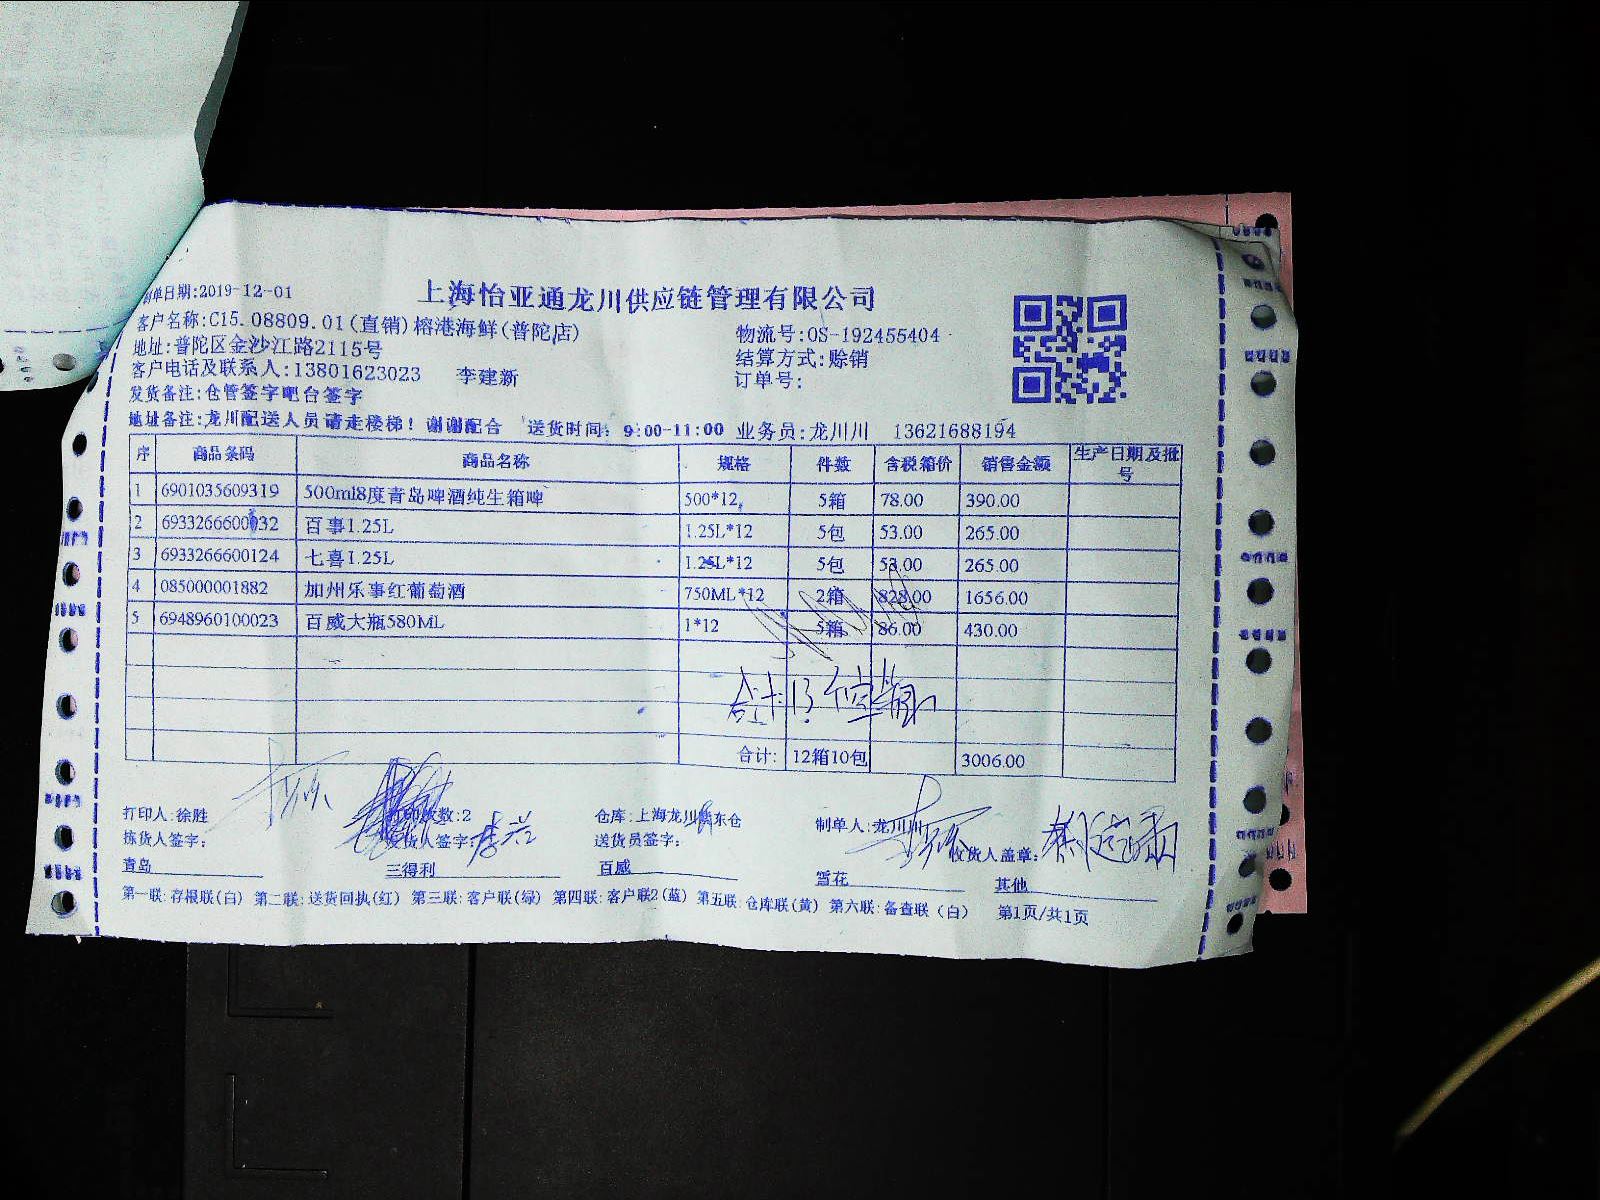 制单日期:2019-12-01
上海怡亚通龙川供应链管理有限公司
客户名称:C15.08809.01(直销)榕港海鲜(普陀店)
物流号:OS-192455404
地址:普陀区金沙江路2115号
结算方式:赊销
客户电话及联系人:13801623023 李建新
订单号:
发货备注:仓管签字吧台签字
地址备注:龙川配送人员请走楼梯！谢谢配合 送货时间：9:00-11:00 业务员:龙川川 13621688194
序 商品条码 商品名称 规格 件数 含税箱价 销售金额 生产日期及批号
1 6901035609319 500ml8度青岛啤酒纯生箱啤 500*12, 5箱 78.00 390.00
2 6933266600032 百事1.25L 1.25L*12 5包 53.00 265.00
3 6933266600124 七喜1.25L 1.25L*12 5包 53.00 265.00
4 085000001882 加州乐事红葡萄酒 750ML*12 2箱 828.00 1656.00
5 6948960100023 百威大瓶580ML 1*12 5箱 86.00 430.00
合计: 12箱10包 3006.00
打印人:徐胜 打印次数:2 仓库:上海龙川 东仓 制单人:龙川川
拣货人签字: 发货人签字: 送货员签字: 收货人盖章:
青岛 三得利 百威 雪花 其他
第一联:存根联(白) 第二联:送货回执(红) 第三联:客户联(绿) 第四联:客户联2(蓝) 第五联:仓库联(黄) 第六联:备查联(白) 第1页/共1页